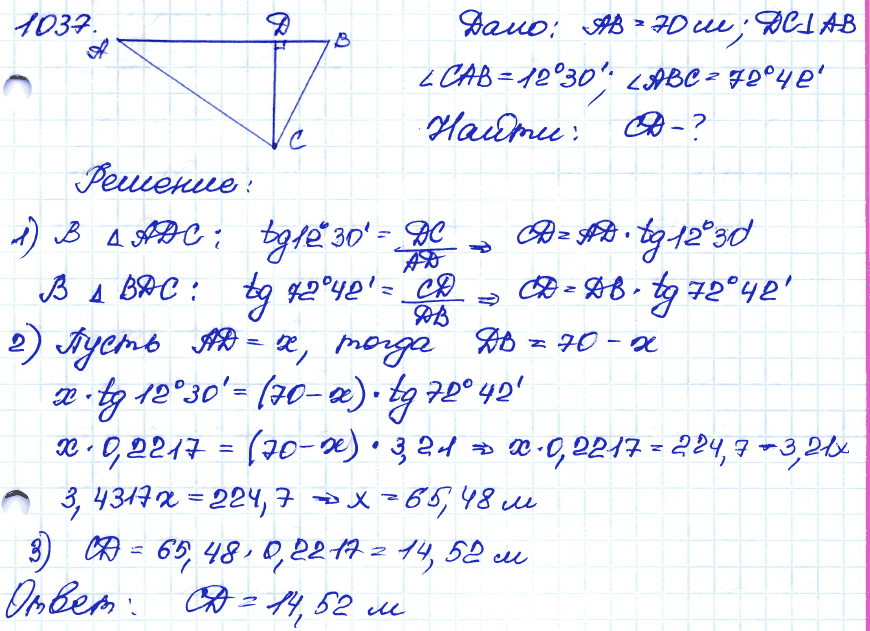 1037.
A D B
C
Дано: AB = 70 м; DC⊥AB
∠CAB = 12°30'; ∠ABC = 72°42'
Найти: CD - ?
Решение:
1) В △ADC: tg12°30' = DC/AD ⇒ CD = AD · tg12°30'
В △BDC: tg 72°42' = CD/DB ⇒ CD = DB · tg 72°42'
2) Пусть AD = x, тогда DB = 70 - x
x · tg 12°30' = (70 - x) · tg 72°42'
x · 0,2217 = (70 - x) · 3,21 ⇒ x · 0,2217 = 224,7 - 3,21x
3,4317x = 224,7 ⇒ x = 65,48 м
3) CD = 65,48 · 0,2217 = 14,52 м
Ответ: CD = 14,52 м